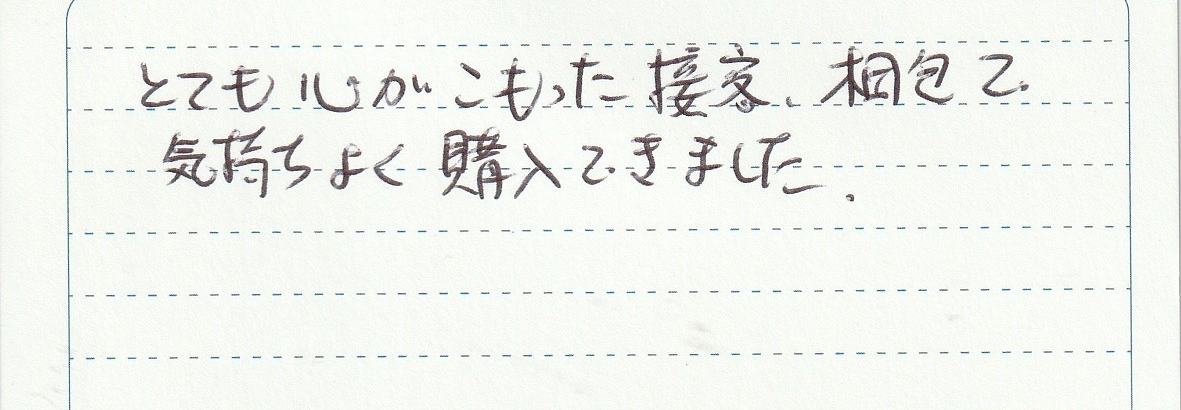 とても心がこもった接客、梱包で
気持ちよく購入できました.